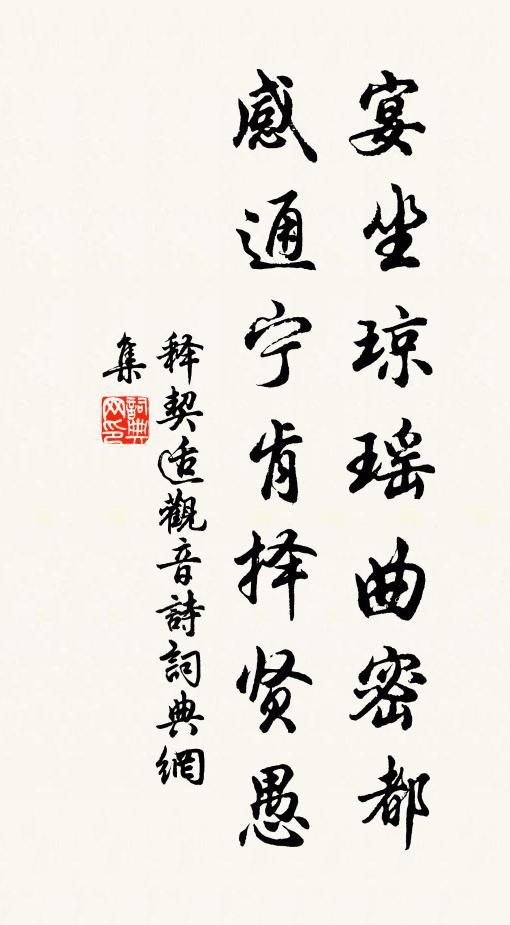 宴坐琼瑶曲密都
感通宁肯择贤愚
释契适觀音詩詞典網
集
詞典网印